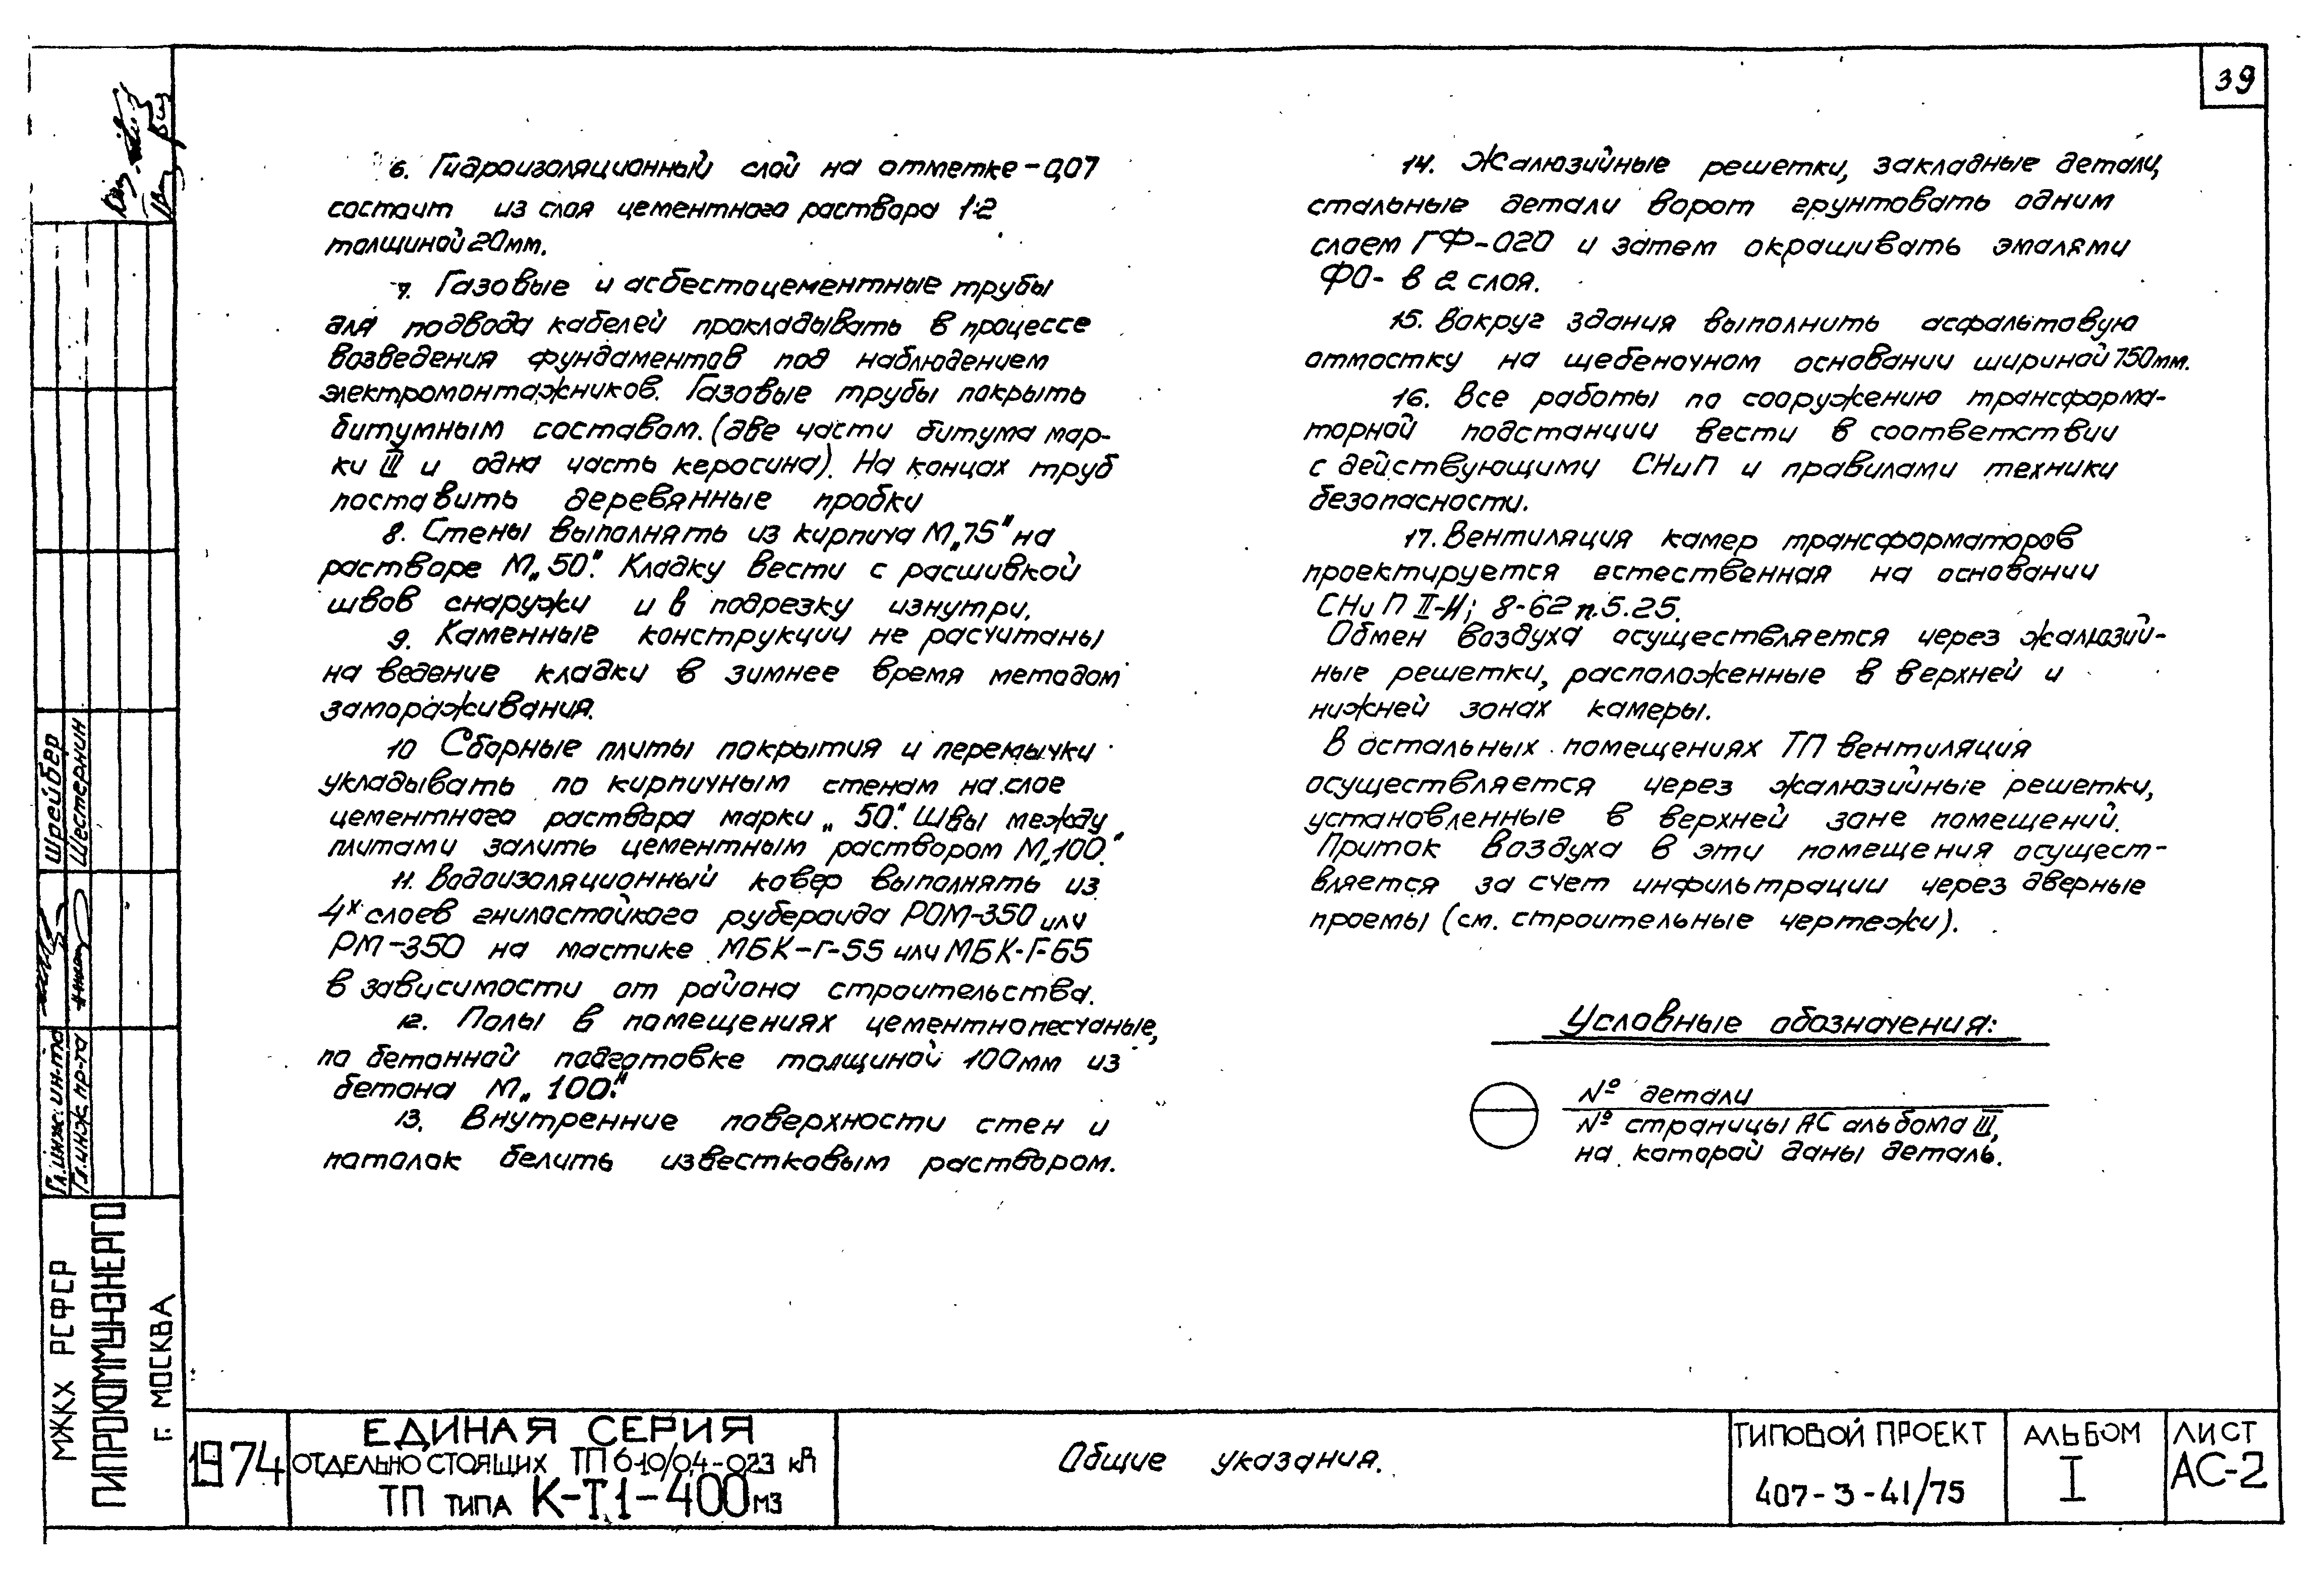 39
6. Гидроизоляционный слой на отметке -0,07
состоит из слоя цементного раствора 1:2
толщиной 20мм.
7. Газовые и асбестоцементные трубы
для подвода кабелей прокладывать в процессе
возведения фундаментов под наблюдением
электромонтажников. Газовые трубы покрыть
битумным составом. (две части битума мар-
ки III и одна часть керосина). На концах труб
поставить деревянные пробки
8. Стены выполнять из кирпича М„75" на
растворе М„50". Кладку вести с расшивкой
швов снаружи и в подрезку изнутри.
9. Каменные конструкции не расчитаны
на ведение кладки в зимнее время методом
замораживания.
10 Сборные плиты покрытия и перемычки
укладывать по кирпичным стенам на слое
цементного раствора марки „50". Швы между
плитами залить цементным раствором М„100."
11. Водоизоляционный ковер выполнять из
4х слоев гнилостойкого рубероида РОМ-350 или
РМ-350 на мастике МБК-Г-55 или МБК-Г-65
в зависимости от района строительства.
12. Полы в помещениях цементнопесчаные,
по бетонной подготовке толщиной 100мм из
бетона М„100."
13. Внутренние поверхности стен и
потолок белить известковым раствором.
14. Жалюзийные решетки, закладные детали,
стальные детали ворот грунтовать одним
слоем ГФ-020 и затем окрашивать эмалями
ФО- в 2 слоя.
15. Вокруг здания выполнить асфальтовую
отмостку на щебеночном основании шириной 750мм.
16. Все работы по сооружению трансформа-
торной подстанции вести в соответствии
с действующими СНиП и правилами техники
безопасности.
17. Вентиляция камер трансформаторов
проектируется естественная на основании
СНиП II-И; 8-62 п.5.25.
Обмен воздуха осуществляется через жалюзий-
ные решетки, расположенные в верхней и
нижней зонах камеры.
В остальных помещениях ТП вентиляция
осуществляется через жалюзийные решетки,
установленные в верхней зоне помещений.
Приток воздуха в эти помещения осущест-
вляется за счет инфильтрации через дверные
проемы (см. строительные чертежи).
Условные обозначения:
№ детали
№ страницы АС альбома III,
на которой даны деталь.
Гл. инж. ин-та Шрейбер
Гл. инж. пр-та Шестернин
МЖКХ РСФСР
ГИПРОКОММУНЭНЕРГО
Г. МОСКВА
1974
ЕДИНАЯ СЕРИЯ
ОТДЕЛЬНО СТОЯЩИХ ТП 6-10/0,4-0,23 кВ
ТП ТИПА К-Т1-400 М3
Общие указания.
ТИПОВОЙ ПРОЕКТ
407-3-41/75
АЛЬБОМ
I
ЛИСТ
АС-2